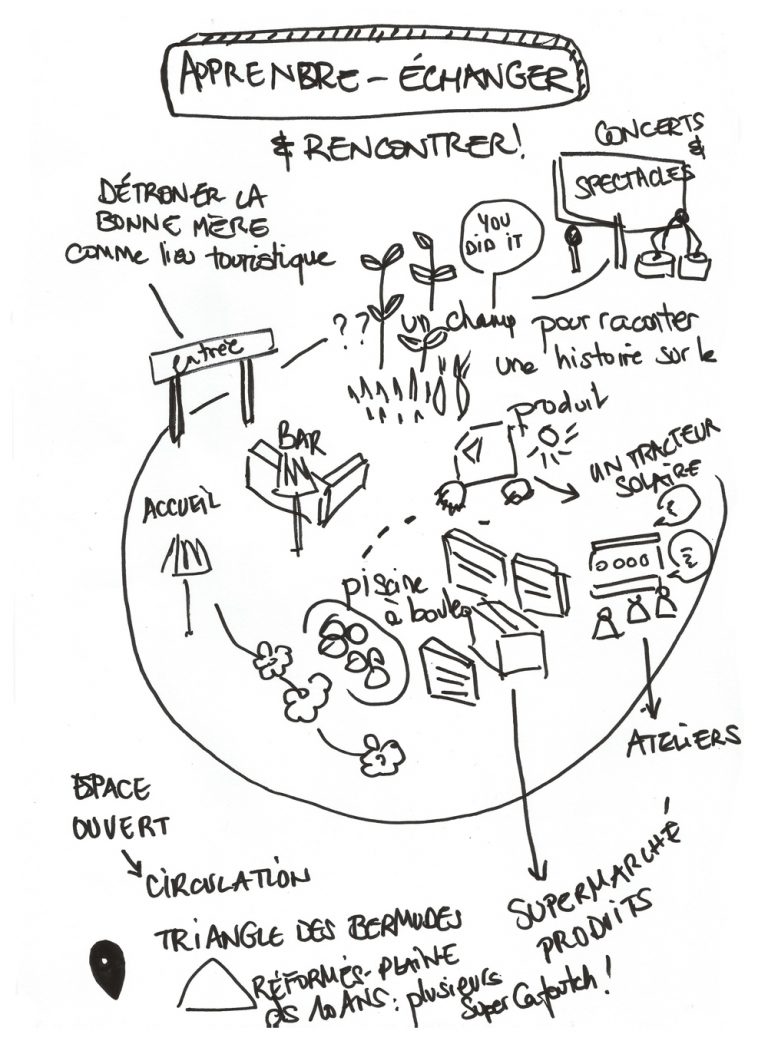 APPRENDRE - ÉCHANGER
& RENCONTRER!
CONCERTS
&
SPECTACLES
DÉTRONER LA
BONNE MÈRE
COMME lieu touristique
YOU
DID IT
entrée
??
un champ pour raconter
une histoire sur le
produit
BAR
UN TRACTEUR
SOLAIRE
ACCUEIL
piscine
à boules
ATELIERS
ESPACE
OUVERT
CIRCULATION
SUPERMARCHÉ
PRODUITS
TRIANGLE DES BERMUDES
RÉFORMÉS-PLAINE
ds 10 ANS: plusieurs
Super Cafoutch!